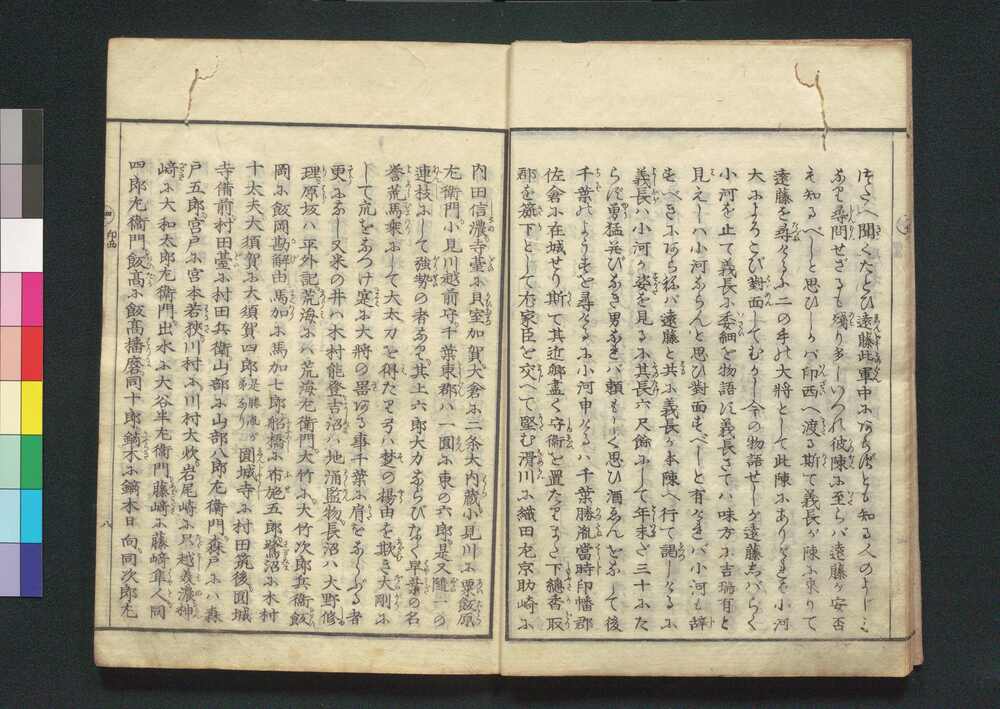 聞くたとひ遠藤此軍中にあるとも知る人のよし
尋問せざるも残り多しいづれ彼陳に至らバ遠藤が安否
も知るべしと思ひしかバ印西へ渡る斯て義長が陳に来りて
遠藤を尋けるに二の手の大将として此陳にありけるを小河
大によろこび對面してむかし今の物語せしが遠藤志バらく
小河を止て義長に委細を物語す義長さてハ味方に吉瑞有と
見えしハ小河ならんと思ひ對面すべしと有けれバ小河も辞
すべきにあらねバ遠藤と共に義長が本陳へ行て謁しける
義長ハ小河が姿を見るに其長六尺餘にして年未ざ三十にた
らず勇猛並びなき男なれバ頼もしく思ひ酒ゑんをなして後
千葉のようすを尋けるに小河申けるハ千葉勝胤當時印幡郡
佐倉に在城せり斯て其近郷盡く守衛を置たまふまた下總香取
郡を籏下として右家臣を交へて堅む滑川に織田左京助崎に
内田信濃寺臺に貝室加賀大倉に二条大内蔵小見川に粟飯原
左衛門小見川越前守千葉東郡ハ一圓に東の六郎是又隨一の
連枝にして強勢の者なり其上六郎大力ならびなく早業の名
誉荒馬乗にして太太刀を得たり弓ハ楚の揚由を欺き大剛に
して荒をなつけ寔に大將の畧ある事千葉に肩をならぶる者
更になし又米の井ハ木村能登吉沼ハ地涌監物長沼ハ大野修
理原坂ハ平外記荒海ハ荒海左衛門大竹に大竹次郎兵衛飯
岡に飯岡勘解由馬加に馬加七郎船橋に布施五郎鷺沼に木村
十太夫大須賀に大須賀四郎是勝胤が舅なり圓城寺に村田筑後圓城
寺備前村田臺に村田兵衛山部に山部八郎左衛門森戸にハ森
戸五郎宮戸に宮本若狭川村に川村大炊岩尾﨑に只越義濃神
﨑に大和太郎左衛門出水に大谷半左衛門藤﨑に藤﨑隼人同
四郎左衛門飯髙に飯髙播磨同十郎鏑木に鏑木日向同次郎左
四
印西
八